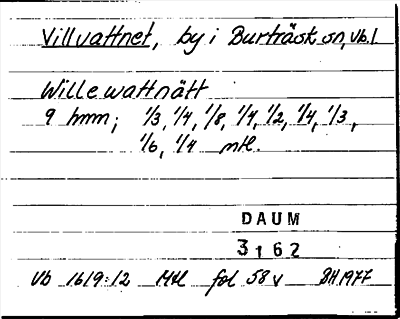 Villvattnet, by i Burträsk sn, Vb.l.
Wille wattnätt
9 hmn; 1/3, 1/4, 1/8, 1/4, 1/2, 1/4, 1/3,
1/6, 1/4 mtl.
DAUM
3162
Vb 1619:12 Mtl fol 58 v BH 1977